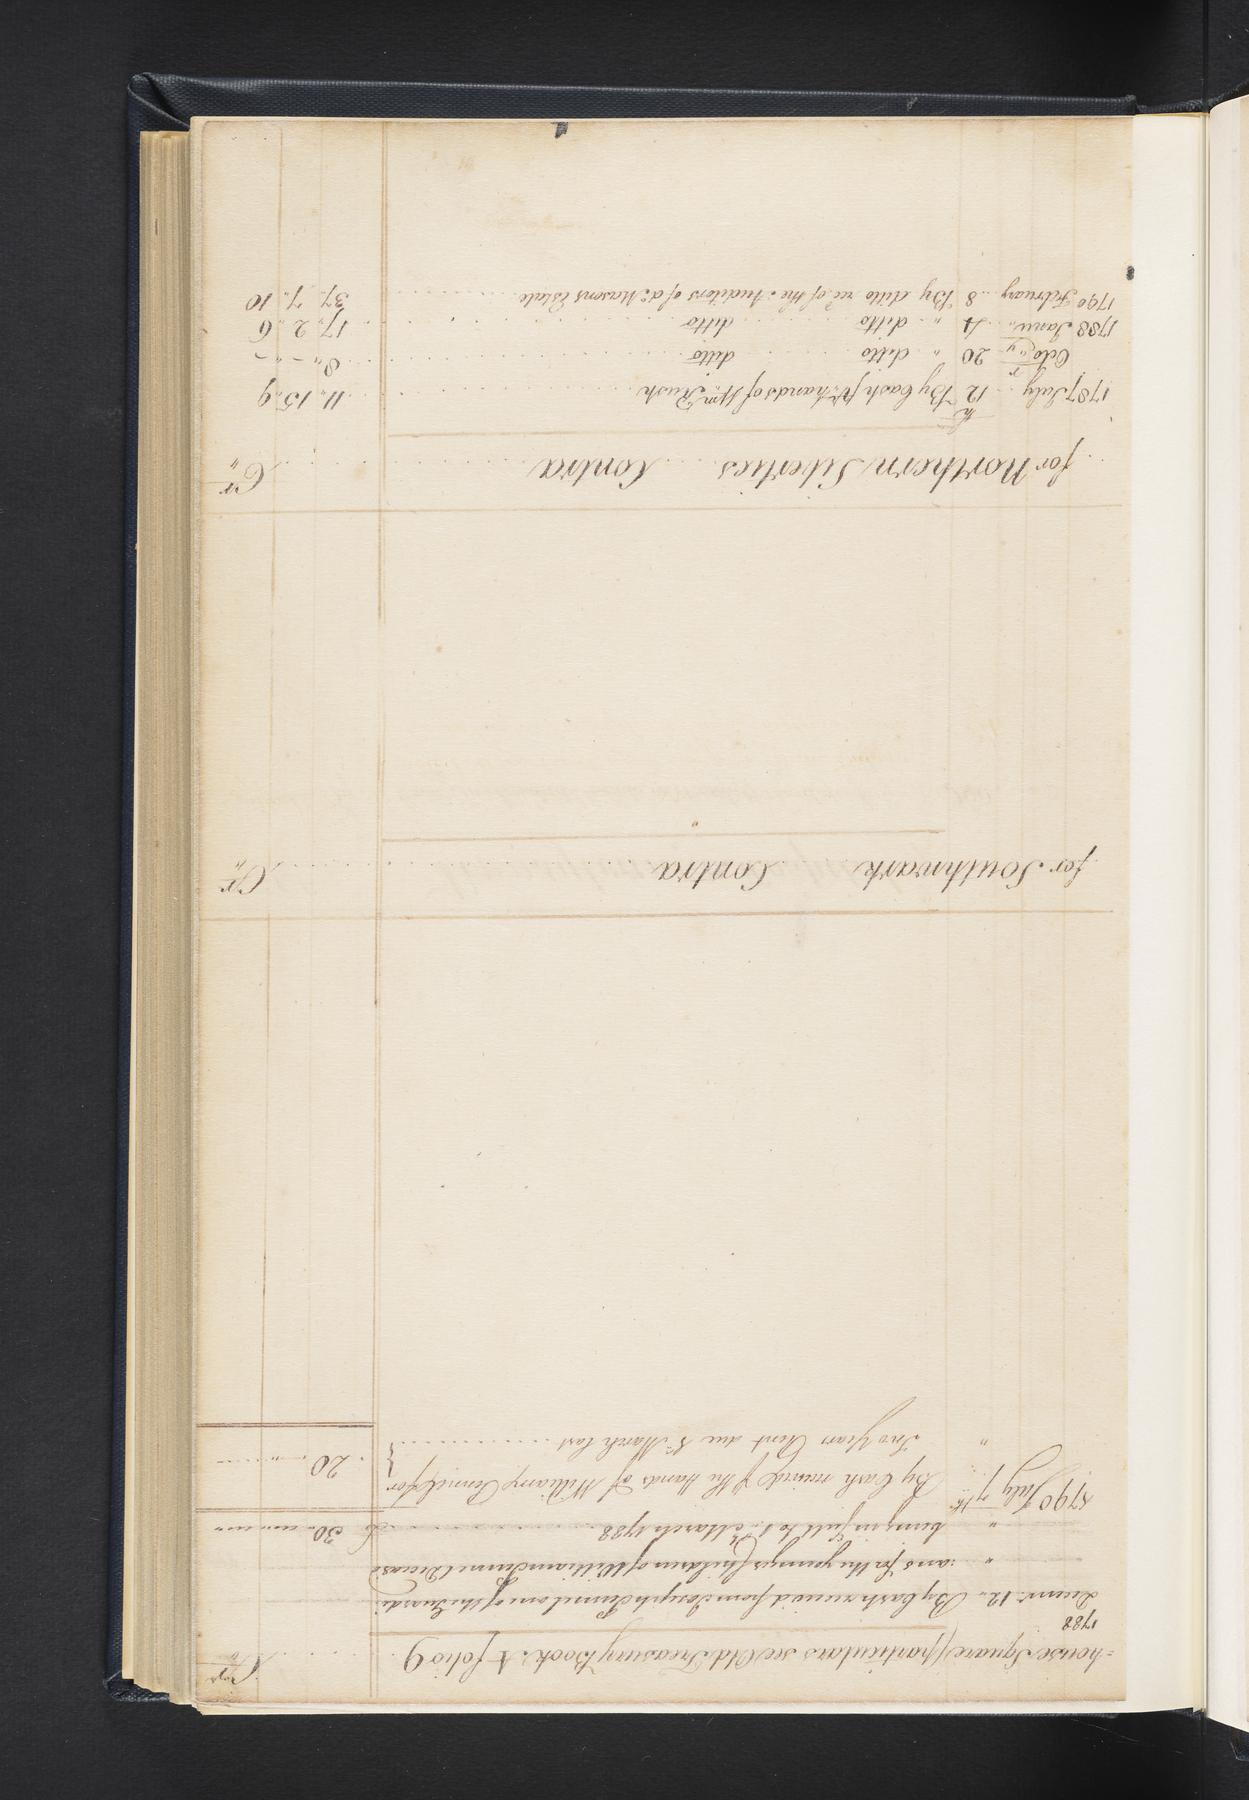 =house Square (particulars see Old Treasury Book A folio 9 Cr
1788
Decemr. 12 By Cash received from Joseph Pennel one of the Guardi-
" ans for the younger Children of William Pennel Deceased
" being in full to 1st March 1788 £ 30 " "
1790 July 7th By Cash received ⅌ the Hands of William Pennel for
" Two Years Rent due 1st March last 20 " "
for Southwark Contra Cr
for Northern Liberties Contra Cr
1787 July 12th By Cash ⅌ hands of Wm. Rush 11 15 9
Octor. 20 " ditto ditto 8 " "
1788 Janu.y 4 " ditto ditto 17 2 6
1790 February 8 By ditto recd. of the Auditors of As. Masons Estate 37 7 10